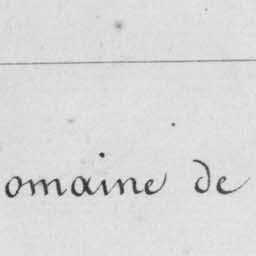 omaine de